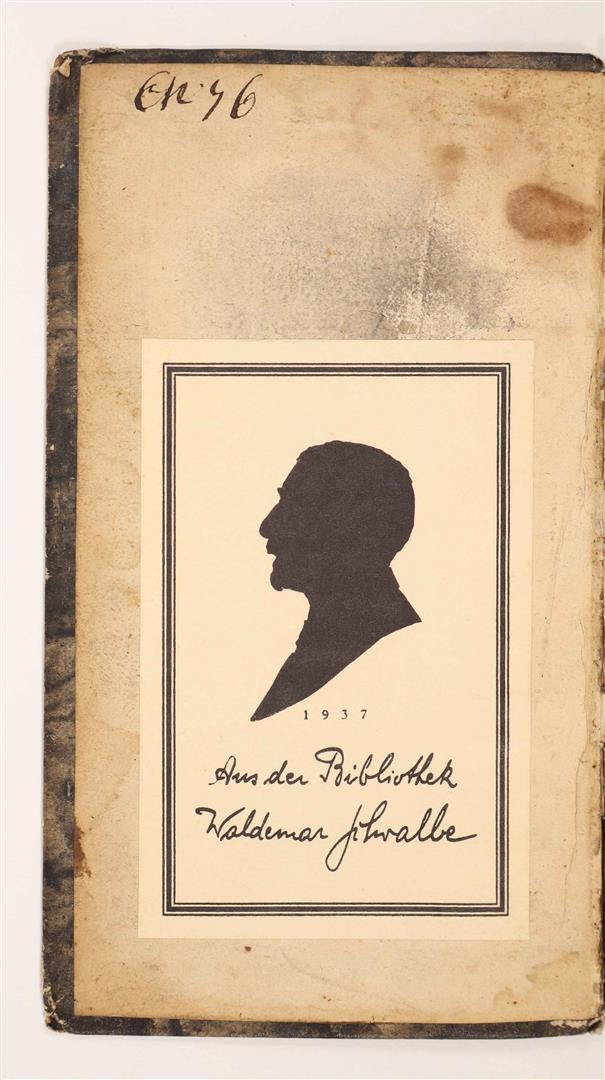 1937
Aus der Bibliothek
Waldemar Schwalbe